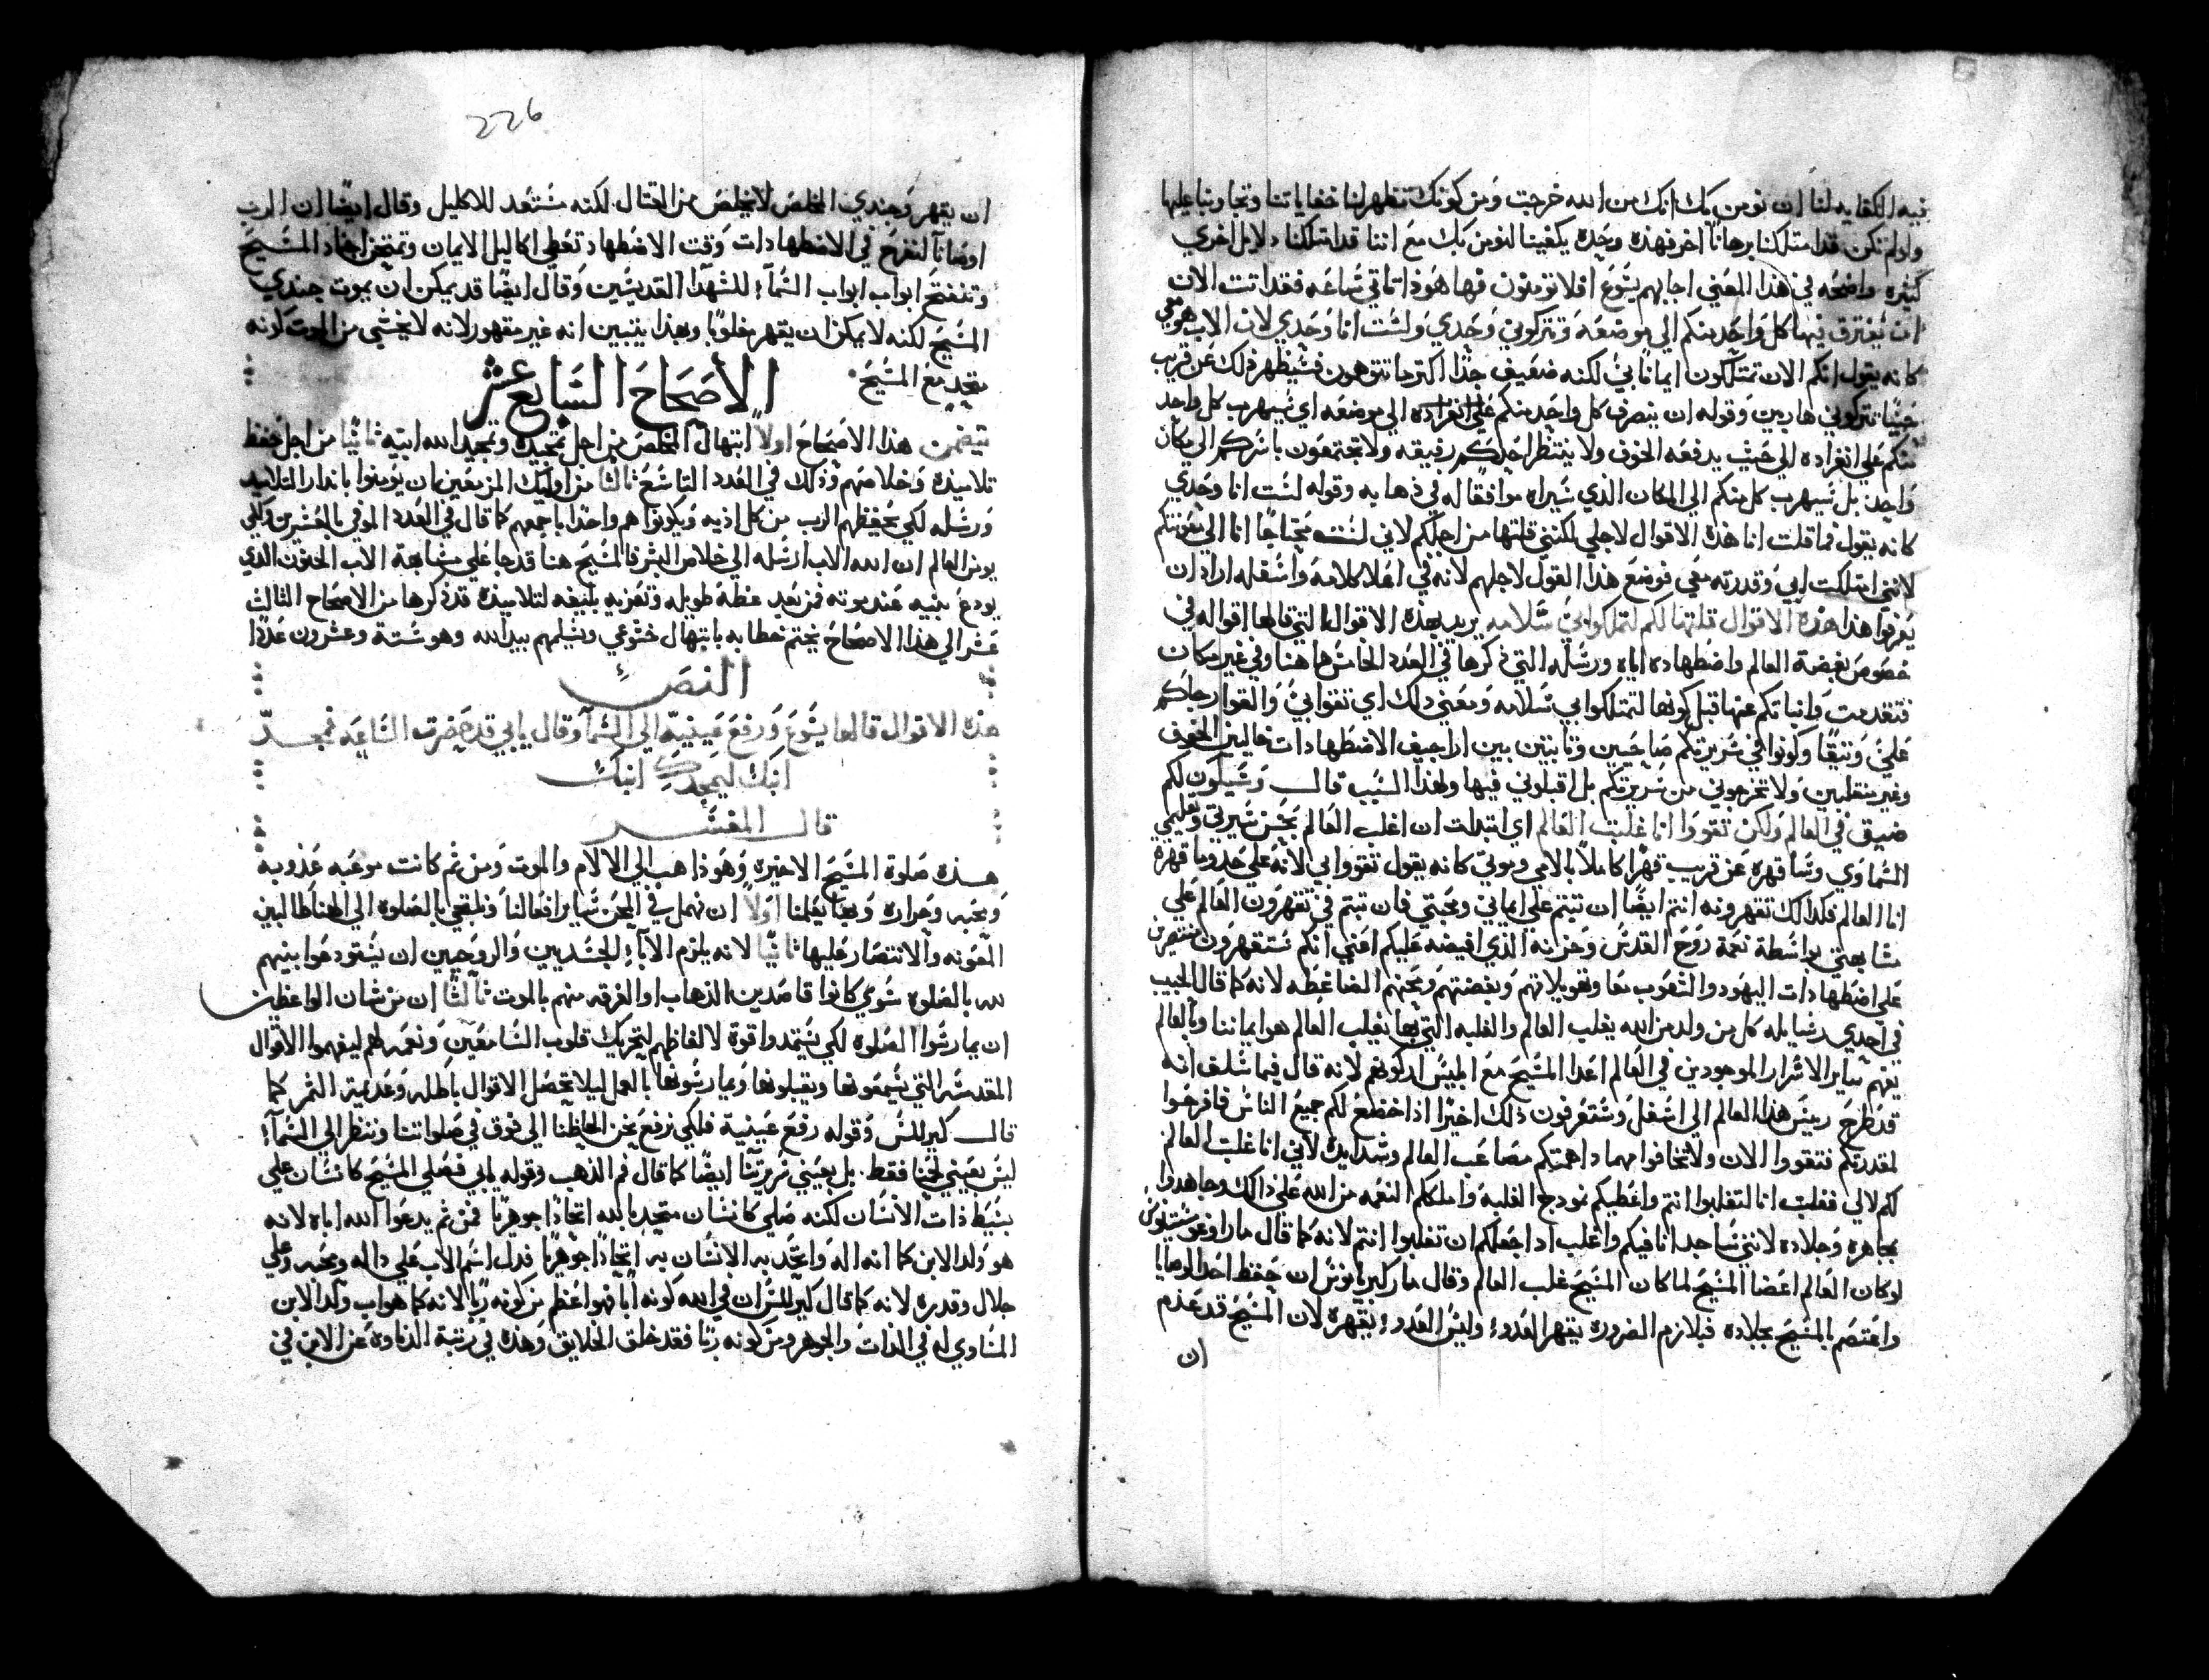 فيه الكفايه لنا ان نومن بك انك من الله خرجت ومن كونك تظهر لنا خفاياتنا وتجاوبنا عليها
ولو لم نكن قد امتلكنا برهانا اخر فهذه وحده يكفينا لنومن بك مع اننا قد امتلكنا دلايل اخري
كثيره واضحه في هذا المعني اجابهم يشوع افلا تومنون فها هوذا تاتي ساعه فقد اتت الان
ان يفترق فيها كل واحد منكم الي موضعه وتتركوني وحدي ولست انا وحدي لان الاب هو معي
كانه يقول انكم الان تمتلكون ايمانا بي لكنه ضعيف جدا اكتر ما تتوهون فسيظهر ذلك عن قريب
حينما تتركوني هاربين وقوله ان ينصرف كل واحد منكم علي انفراده الي موضعه اي سيهرب كل واحد
منكم علي انفراده الي حيث يدفعه الخوف ولا ينتظر احدكم رفيقه ولا تجتمعون باسركم الي مكان
واحد بل سيهرب كل منكم الي المكان الذي سيراه موافقا له في ذهابه وقوله لست انا وحدي
كانه يقول فما قلت انا هذه الاقوال لاجلي لكنني قلتها من اجلكم لاني لست محتاجا انا الي معونتكم
لانني امتلكت ابي وقدرته معي فوضع هذا القول لاجلهم لانه في اعلا كلامه واسفله اراد ان
يعرفوا هذا هذه الاقوال قلتها لكم لتملكوا بي سلامه يريد بهذه الاقوال التي قالها اقواله في
خصوص بغضة العالم واضطهاده اياه ورسله التي ذكرها في العدد الخامس هاهنا وفي غير مكان
فتقدمت وانباتكم عنها قبل كونها لتمتلكوا بي سلامه ومعني ذلك اي تقوا بي والقوا رجاكم
علي وتيقا وكونوا في سريرتكم صاحيين وثابتين بين اراجيف الاضطهادات خاليين الخوف
وغير منقلبين ولا تخرجوني من سريرتكم بل اقبلوني فيها ولهذا السبب قال وسيكون لكم
ضيق في العالم ولكن تقووا انا غلبت العالم اي ابتدات ان اغلب العالم بحسن سيرتي وتعليمي
السماوي وساقهره عن قريب قهرا كاملا بالامي وموتي كانه يقول تقووا بي لانه علي حذو ما قهرة
انا العالم فكذالك تقهرونه انتم ايضا ان تبتم علي ايماني ومحبتي فان تبتم في تقهرون العالم علي
مشابهتي بواسطة نعمة روح القدس وعزانه الذي افيضه عليكم اعني انكم ستقهرون منتصرين
علي اضطهادات اليهود والشعوب معا وتهويلاتهم وبغضتهم ومحنهم الضاغطه لانه كما قال الحبيب
في احدي رسايله كل من ولد من الله يغلب العالم والغلبه التي بها يغلب العالم هو ايماننا وبالعالم
يفهم ساير الاشرار الموجودين في العالم اعدا المسيح مع ابليس اركونهم لانه قال فيما سلف انه
قد طرح رييس هذا العالم الي اسفل وستعرفون ذلك اخيرا اذا خضع لكم جميع الناس فافرحوا
لمقدرتكم فتقووا الان ولا تخافوا مهما داهمتكم مصاعب العالم وشدايده لاني انا غلبت العالم
لكم لا لي فغلبت انا لتغلبوا انتم واعطيكم نموذج الغلبة واملككم النعمه من الله علي ذالك وجاهدوا
بجاهره وجلاده لانني ساحد انا فيكم واغلب اذ اجعلكم ان تغلبوا انتم لانه كما قال مار اوغوستينوس
لو كان العالم اعضا المسيح لما كان المسيح غلب العالم وقال مار كبريانوس ان حفظ احد الوصايا
واعتصم بالمسيح بجلاده فبلازم الضروره يقهر العدو وليس العدو يقهره لان المسيح قد عدم
ان
226
ان يقهر وجندي المخلص لا يخلص من القتال لكنه مستعد للاكليل وقال ايضا ان الرب
اوصانا لنفرح في الاضطهادات وقت الاضطهاد تعطي اكاليل الايمان وتمتحن اجناد المسيح
وتنفتح ابواب ابواب السماء للشهدا القديسين وقال ايضا قد يمكن ان يموت جندي
المسيح لكنه لا يمكن ان يقهر مغلوبا وبهذا يتبين انه غير مقهور لانه لا يخشي من الموت كونه
متحد مع المسيح
الاصحاح السابع عشر
يتضمن هذا الاصحاح اولا ابتهال المخلص من اجل تمجيده وتمجيد الله ابيه ثانيا من اجل حفظ
تلاميذه وخلاصهم وذلك في العدد التاسع ثالثا من اوليك المزمعين ان يومنوا بانذار التلاميد
ورسله لكي يحفظهم الرب من كل اذيه ويكونوا هم واحدا باجمعهم كما قال في العدد الموفي بالعشرين ولكي
يومن العالم ان الله الاب ارسله الي خلاص البشر فالمسيح هنا قد جا علي مشابهة الاب الحنون الذي
يودع بنيه عند موته فمن بعد عظة طويله وتعزيه بليغه لتلاميذه قد ذكرها من الاصحاح الثالث
عشر الي هذا الاصحاح يختم خطابه بابتهال خشوعي ويسلمهم بيد الله وهو ستة وعشرون عددا
النص
هذه الاقوال قالها يشوع ورفع عينيه الي السما وقال يا ابي قد حضرت الساعه فمجد
ابنك ليمجدك ابنك
قال المفسر
هذه صلوة المسيح الاخيره وهو ذاهب الي الالام والموت ومن ثم كانت موعبه عذوبه
ومحبه وحراره وبها يعلمنا اولا ان نهمل في المحن ساير افعالنا ونلتجي بالصلوة الي الهنا طالبين
المعونه والانتصار عليها ثانيا لانه يلزم الاباء الجسديين والروحيين ان يستودعوا بنيهم
لله بالصلوه سوي كانوا قاصدين الذهاب او الفرقه منهم بالموت ثالثا ان من شان الواعظين
ان يمارسوا الصلوه لكي يستمدوا قوة لالفاظهم لتحريك قلوب السامعين ونعمه لهم ليفهموا الاقوال
المقدسه التي يسمعونها ويقبلونها ويمارسونها بالعمل ليلا تحصل الاقوال باطله وعديمة الثمر كما
قال كيرللس وقوله رفع عينيه فلكي نرفع نحن الحاظنا الي فوق في صلواتنا وننظر الي السماء
ليس بعيني لحمنا فقط بل بعيني سريرتنا ايضا كما قال فم الذهب وقوله يا ابي فصلي المسيح كانسان علي
بسيط ذات الانسان لكنه صلي كانسان متحد بالله اتحادا جوهريا فمن ثم يدعوا الله اباه لانه
هو ولد الابن كما انه اله واتحد به الانسان به اتحادا جوهريا فدل اسم الاب علي داله ومحبه وعلي
جلال وقدره لانه كما قال كيرللس ان في الله كونه ابا فهو اعظم من كونه ربا لانه كما هو اب ولد الابن
المساوي له في الذات والجوهر ومن كونه ربا فقد خلق الخلايق وهذه في رتبة الذاوة عن الابن في